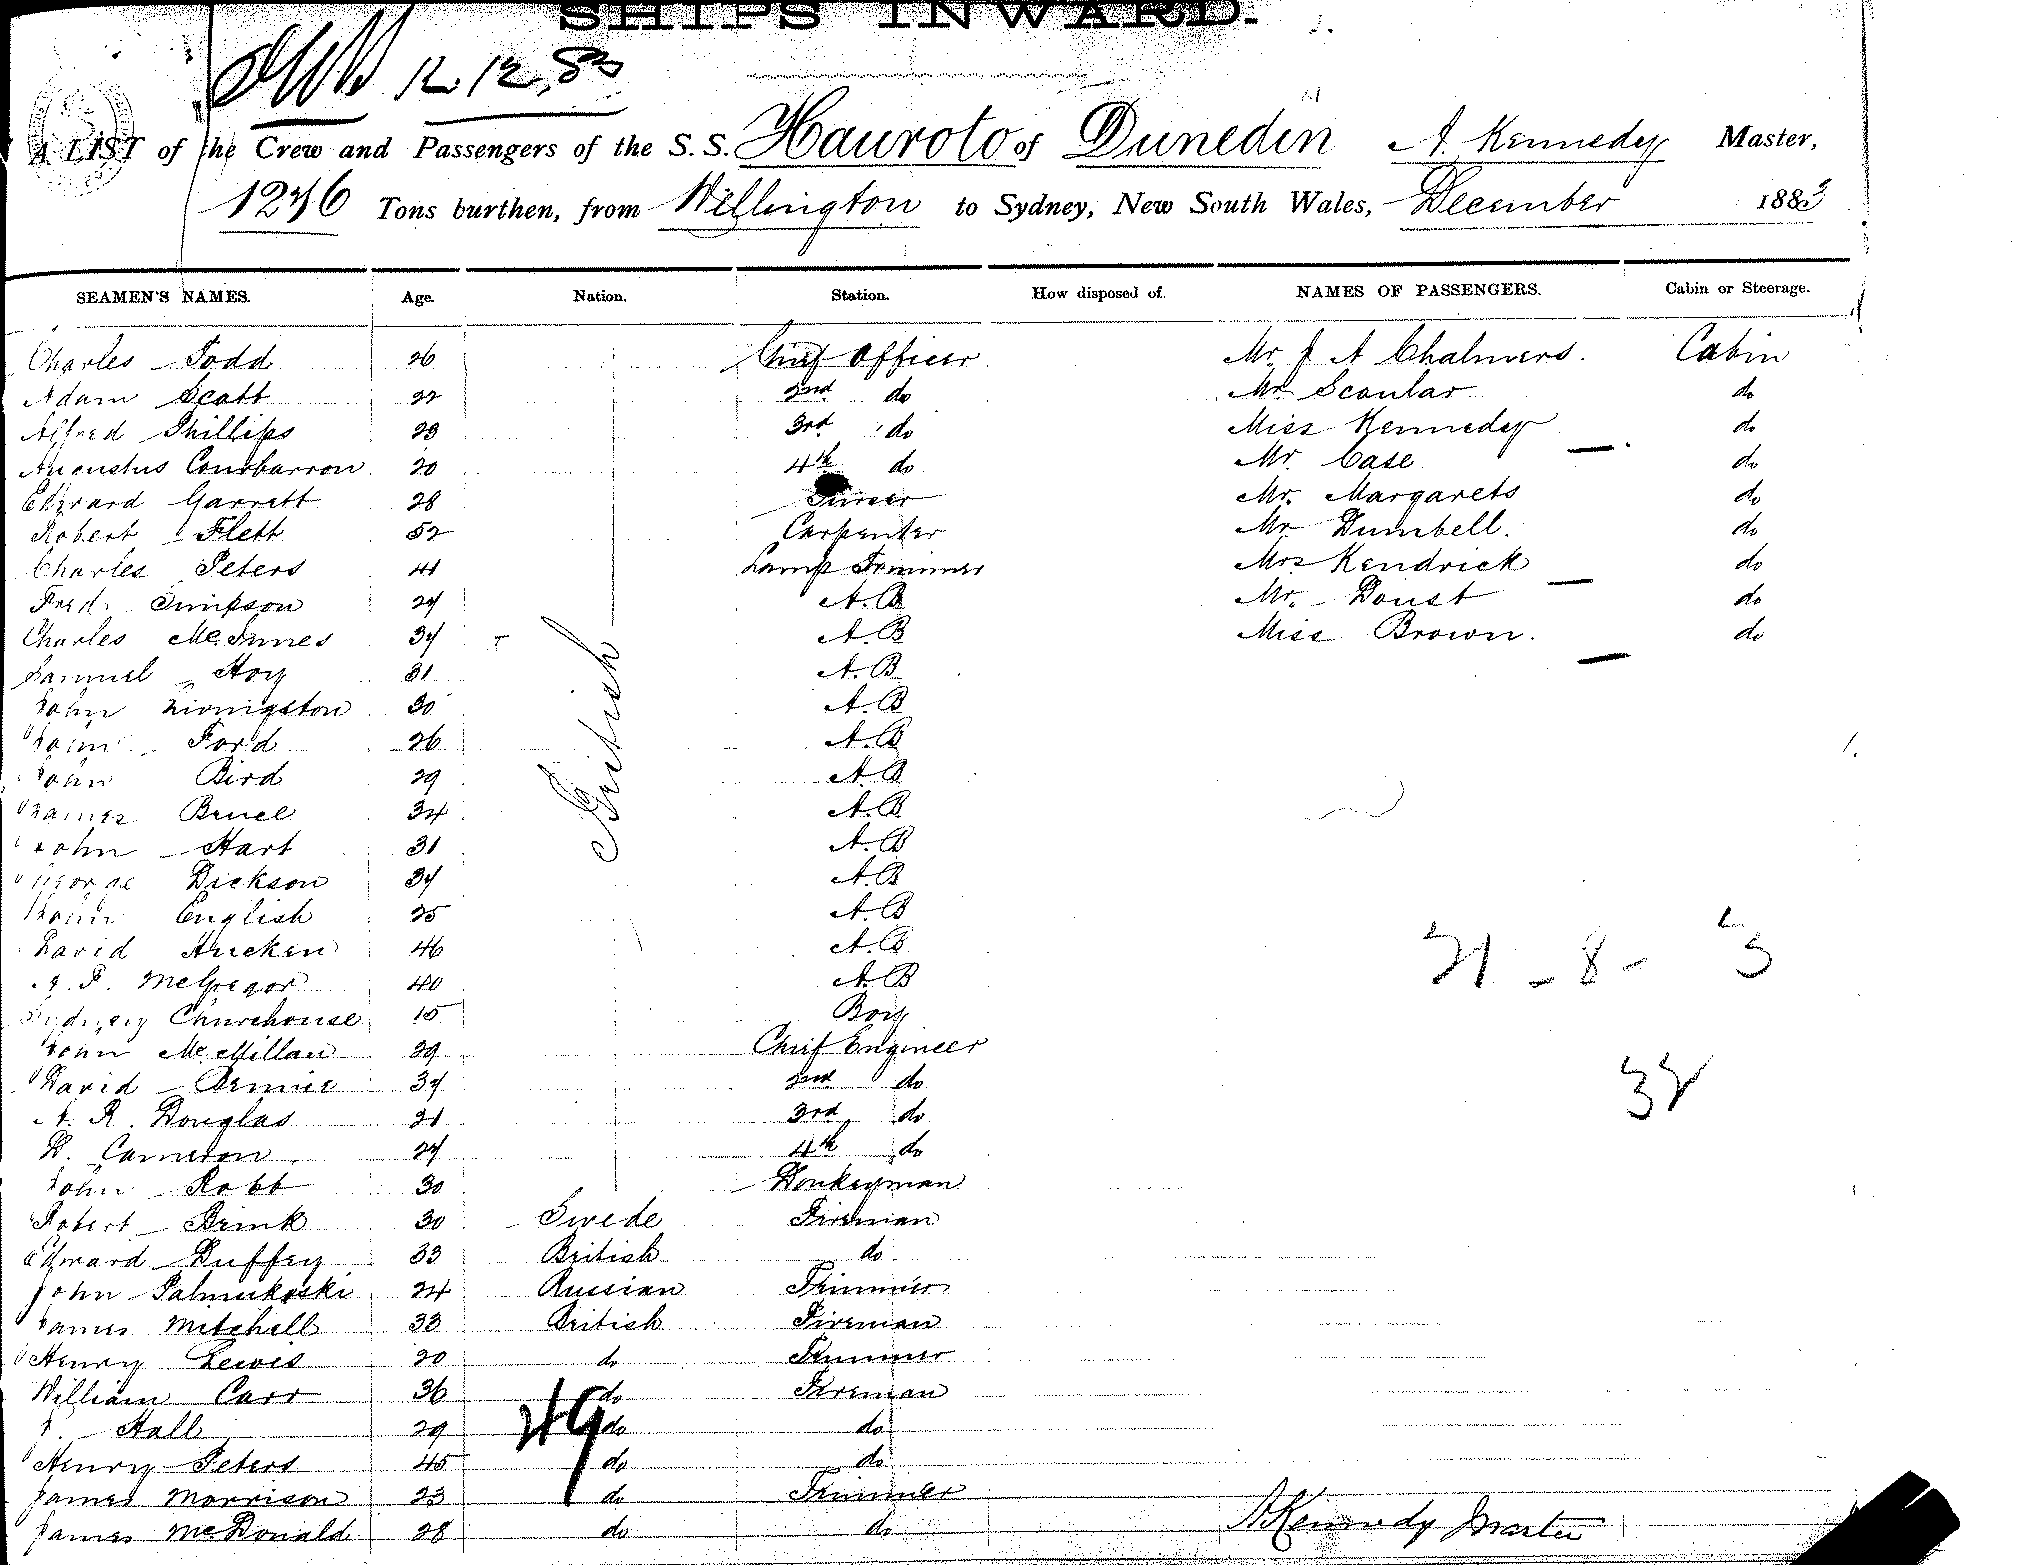 SHIPS INWARD.
12.12.83
A LIST of the Crew and Passengers of the S.S. Hauroto of Dunedin A. Kennedy Master,
1276 Tons burthen, from Wellington to Sydney, New South Wales, December 1883
SEAMEN'S NAMES. Age. Nation. Station. How disposed of. NAMES OF PASSENGERS. Cabin or Steerage.
Charles Todd 26 Chief Officer Mr. J A Chalmers. Cabin
Adam Scott 22 2nd do Mr Scoular do
Alfred Phillips 23 3rd do Miss Kennedy do
Augustus 20 4th do Mr. Case do
Edward Garrett 28 Mr. Margarets do
Robert Flett 52 Carpenter Mr Dumbell. do
Charles Peters 41 Lamp Trimmer Mrs Kendrick do
Fred. Simpson 27 A.B Mr. Doust do
Charles McInnes 37 A.B Miss Brown. do
Samuel Hoy 31 A.B
John Livingston 30 A.B
John Ford 26 A.B
British
John Bird 29 A.B
James Bruce 34 A.B
John Hart 31 A.B
George Dickson 37 A.B
John English 25 A.B
David Aucken 46 A.B
McGregor 40 A.B 21 - 8 - 3
Sydney Churchouse 15 Boy
John McMillan 29 Chief Engineer
David 37 2nd do
A. R. Douglas 21 3rd do
D. Cameron 27 4th do
John Robb 30 Donkeyman
Robert Brink 30 Swede Fireman
Edward Duffey 33 British do
John 24 Russian Trimmer
James Mitchell 33 British Fireman
Henry Lewis 20 do Trimmer
William Carr 36 do Fireman
J. Hall 29 do do
49
Henry Peters 45 do do
James Morrison 23 do Trimmer
James McDonald 28 do do
A Kennedy Master